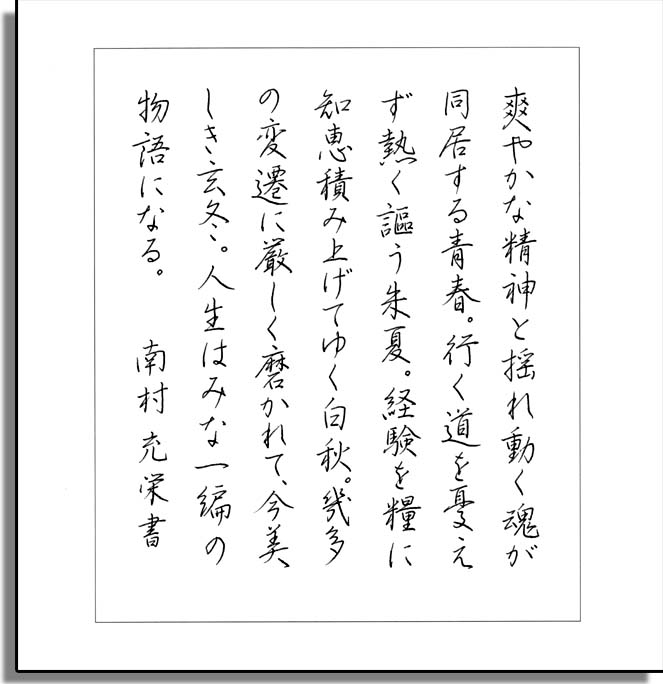 爽やかな精神と揺れ動く魂が
同居する青春。行く道を憂え
ず熱く謳う朱夏。経験を糧に
知恵積み上げてゆく白秋。幾多
の変遷に厳しく磨かれて、今美
しき玄冬。人生はみな一編の
物語になる。 南村充栄書